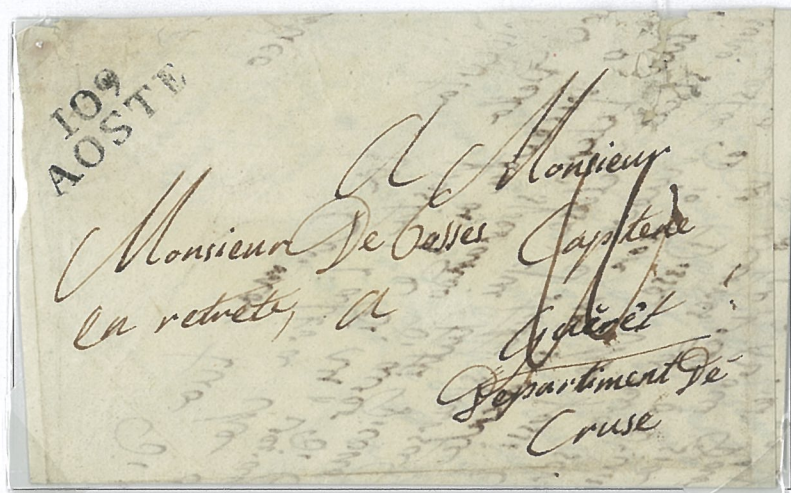 109
AOSTE
A Monsieur
Monsieur De Cosses Capitene
en retrete, A Guérêt
Départiment De
Cruse